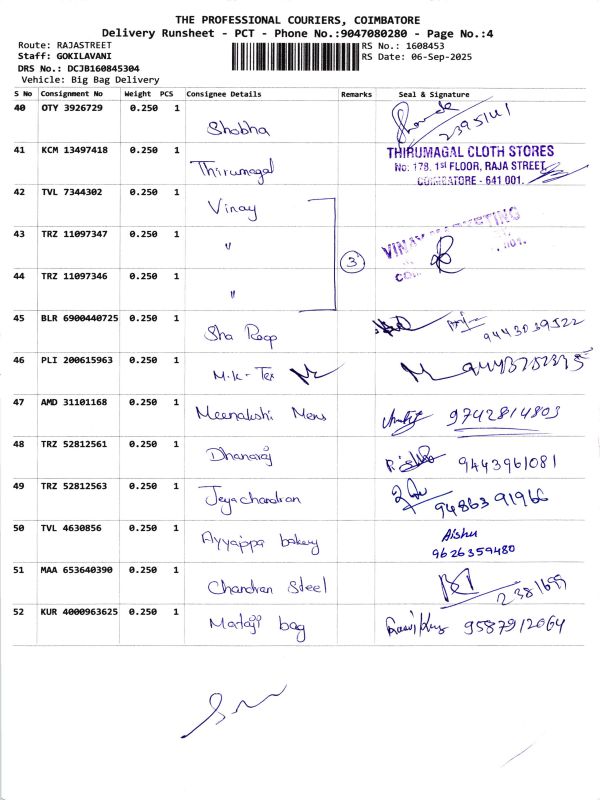 THE PROFESSIONAL COURIERS, COIMBATORE
Delivery Runsheet - PCT - Phone No.:9047080280 - Page No.:4
Route: RAJASTREET RS No.: 1608453
Staff: GOKILAVANI RS Date: 06-Sep-2025
DRS No.: DCJB160845304
Vehicle: Big Bag Delivery
S No Consignment No Weight PCS Consignee Details Remarks Seal & Signature
40 OTY 3926729 0.250 1
Shobha 2395141
41 KCM 13497418 0.250 1
Thirumagal
THIRUMAGAL CLOTH STORES
No: 178, 1st FLOOR, RAJA STREET,
COIMBATORE - 641 001.
42 TVL 7344302 0.250 1
Vinay
43 TRZ 11097347 0.250 1
" 3 VINAY MARKETING
44 TRZ 11097346 0.250 1
"
45 BLR 6900440725 0.250 1
Sha Roop 9443039522
46 PLI 200615963 0.250 1
M.K- Tex
47 AMD 31101168 0.250 1
Meenakshi Mens 9742814803
48 TRZ 52812561 0.250 1
Dhanaraj 9443961081
49 TRZ 52812563 0.250 1
Jeyachandran 9486391966
50 TVL 4630856 0.250 1
Ayyappa bakery Aishu
9626359480
51 MAA 653640390 0.250 1
Chandran Steel 2381699
52 KUR 4000963625 0.250 1
Mataji bag 9587912064